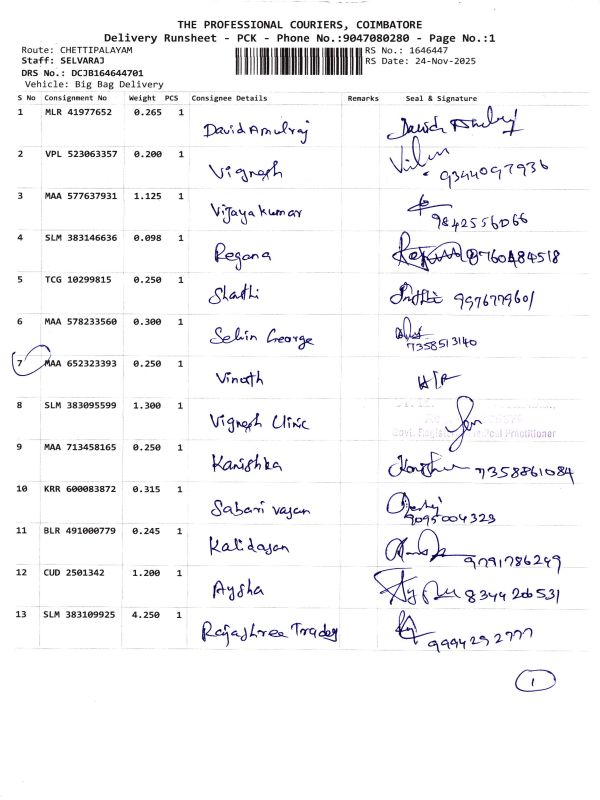 THE PROFESSIONAL COURIERS, COIMBATORE
Delivery Runsheet - PCK - Phone No.:9047080280 - Page No.:1
Route: CHETTIPALAYAM RS No.: 1646447
Staff: SELVARAJ RS Date: 24-Nov-2025
DRS No.: DCJB164644701
Vehicle: Big Bag Delivery
S No Consignment No Weight PCS Consignee Details Remarks Seal & Signature
1 MLR 41977652 0.265 1
David Amulraj
2 VPL 523063357 0.200 1
Vignesh 9344097936
3 MAA 577637931 1.125 1
Vijayakumar 9842556066
4 SLM 383146636 0.098 1
Regana 8760484518
5 TCG 10299815 0.250 1
Shathi 9976779601
6 MAA 578233560 0.300 1
Selvin George 7358513140
7 MAA 652323393 0.250 1
Vinoth
8 SLM 383095599 1.300 1
Vignesh Clinic
Practitioner
9 MAA 713458165 0.250 1
Kanishka 7358861084
10 KRR 600083872 0.315 1
Sabari vasan 9095004323
11 BLR 491000779 0.245 1
Kalidasan 9791786249
12 CUD 2501342 1.200 1
Aysha 8344206531
13 SLM 383109925 4.250 1
Rajashree Trades 9994292777
1